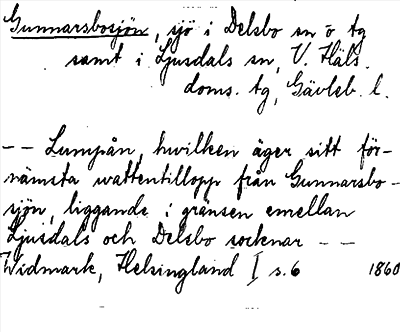 Gunnarsbosjön, sjö i Delsbo sn o tg
samt i Ljusdals sn, V. Häls.
doms. tg, Gävleb. l.
-- Lumpån, hwilken äger sitt för-
nämsta wattentillopp från Gunnarsbo-
sjön, liggande i gränsen emellan
Ljusdals och Delsbo socknar --
Widmark, Helsingland I s. 6 1860